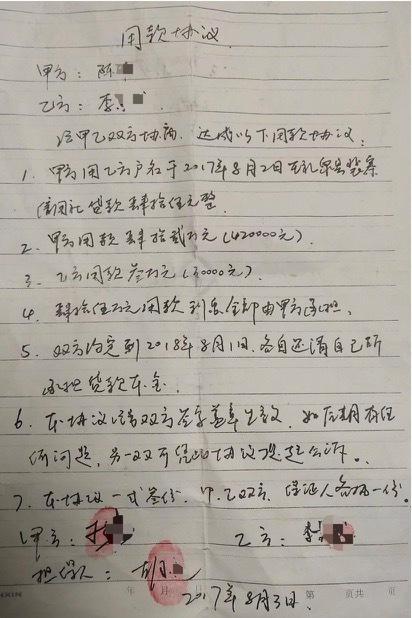 用款协议
甲方：陈
乙方：李
经甲乙双方协商，达成以下用款协议：
1．甲方用乙方户名于2017年8月2日在礼泉县
信用社贷款肆拾伍万元整
2．甲方用款肆拾贰万元（420000元）．
3．乙方用款叁万元（30000元）
4．肆拾伍万元用款利息全部由甲方承担．
5．双方约定到2018年8月1日，各自还清自己所
承担贷款本金．
6．本协议经双方签字盖章生效，如后期有任
何问题，另一双可凭此协议提起公诉。
7．本协议一式叁份，甲、乙双方、保证人各执一份。
甲方：
乙方：李
担保人：
2017年8月3日．
年 月 第 页共 页